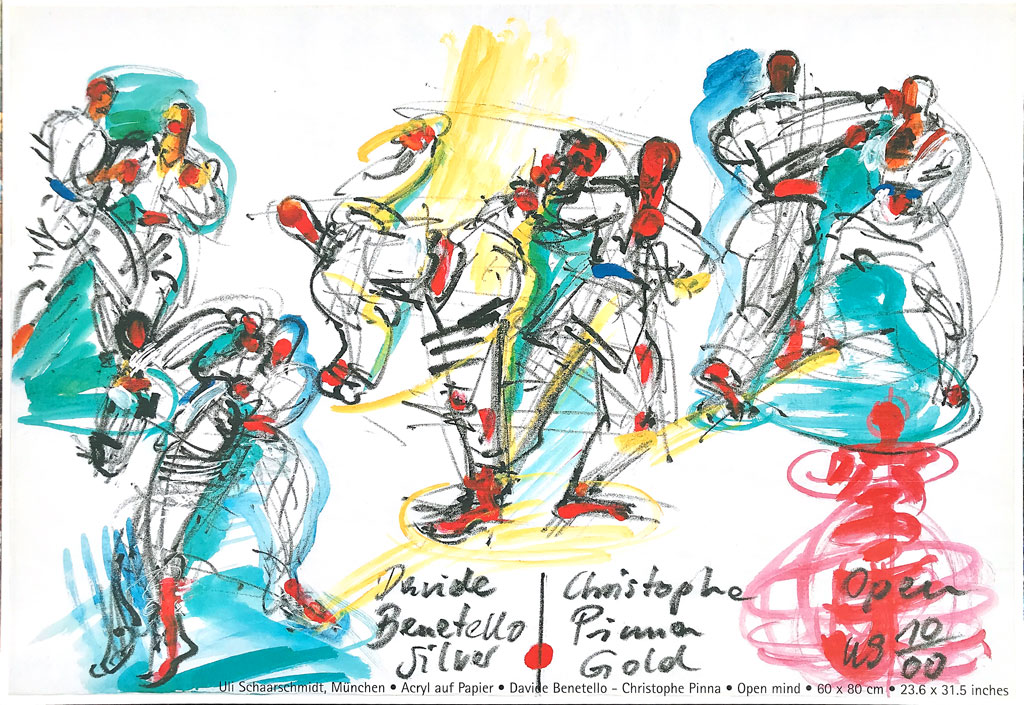 Davide
Benetello
Silver
Christophe
Pinna
Gold
Open
US 10/00
Uli Schaarschmidt, München • Acryl auf Papier • Davide Benetello – Christophe Pinna • Open mind • 60 x 80 cm • 23.6 x 31.5 inches